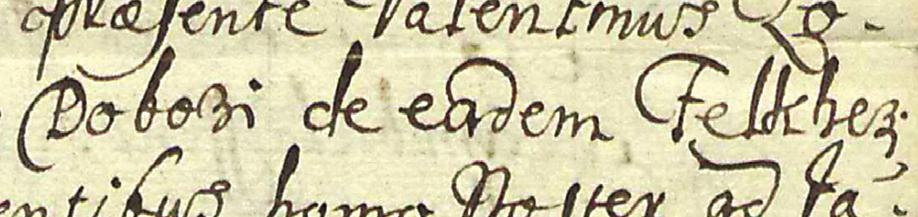 præsente Valentinus Zg-
Dobozi de eadem Feltthez;
entibus homo Noster ad fa-